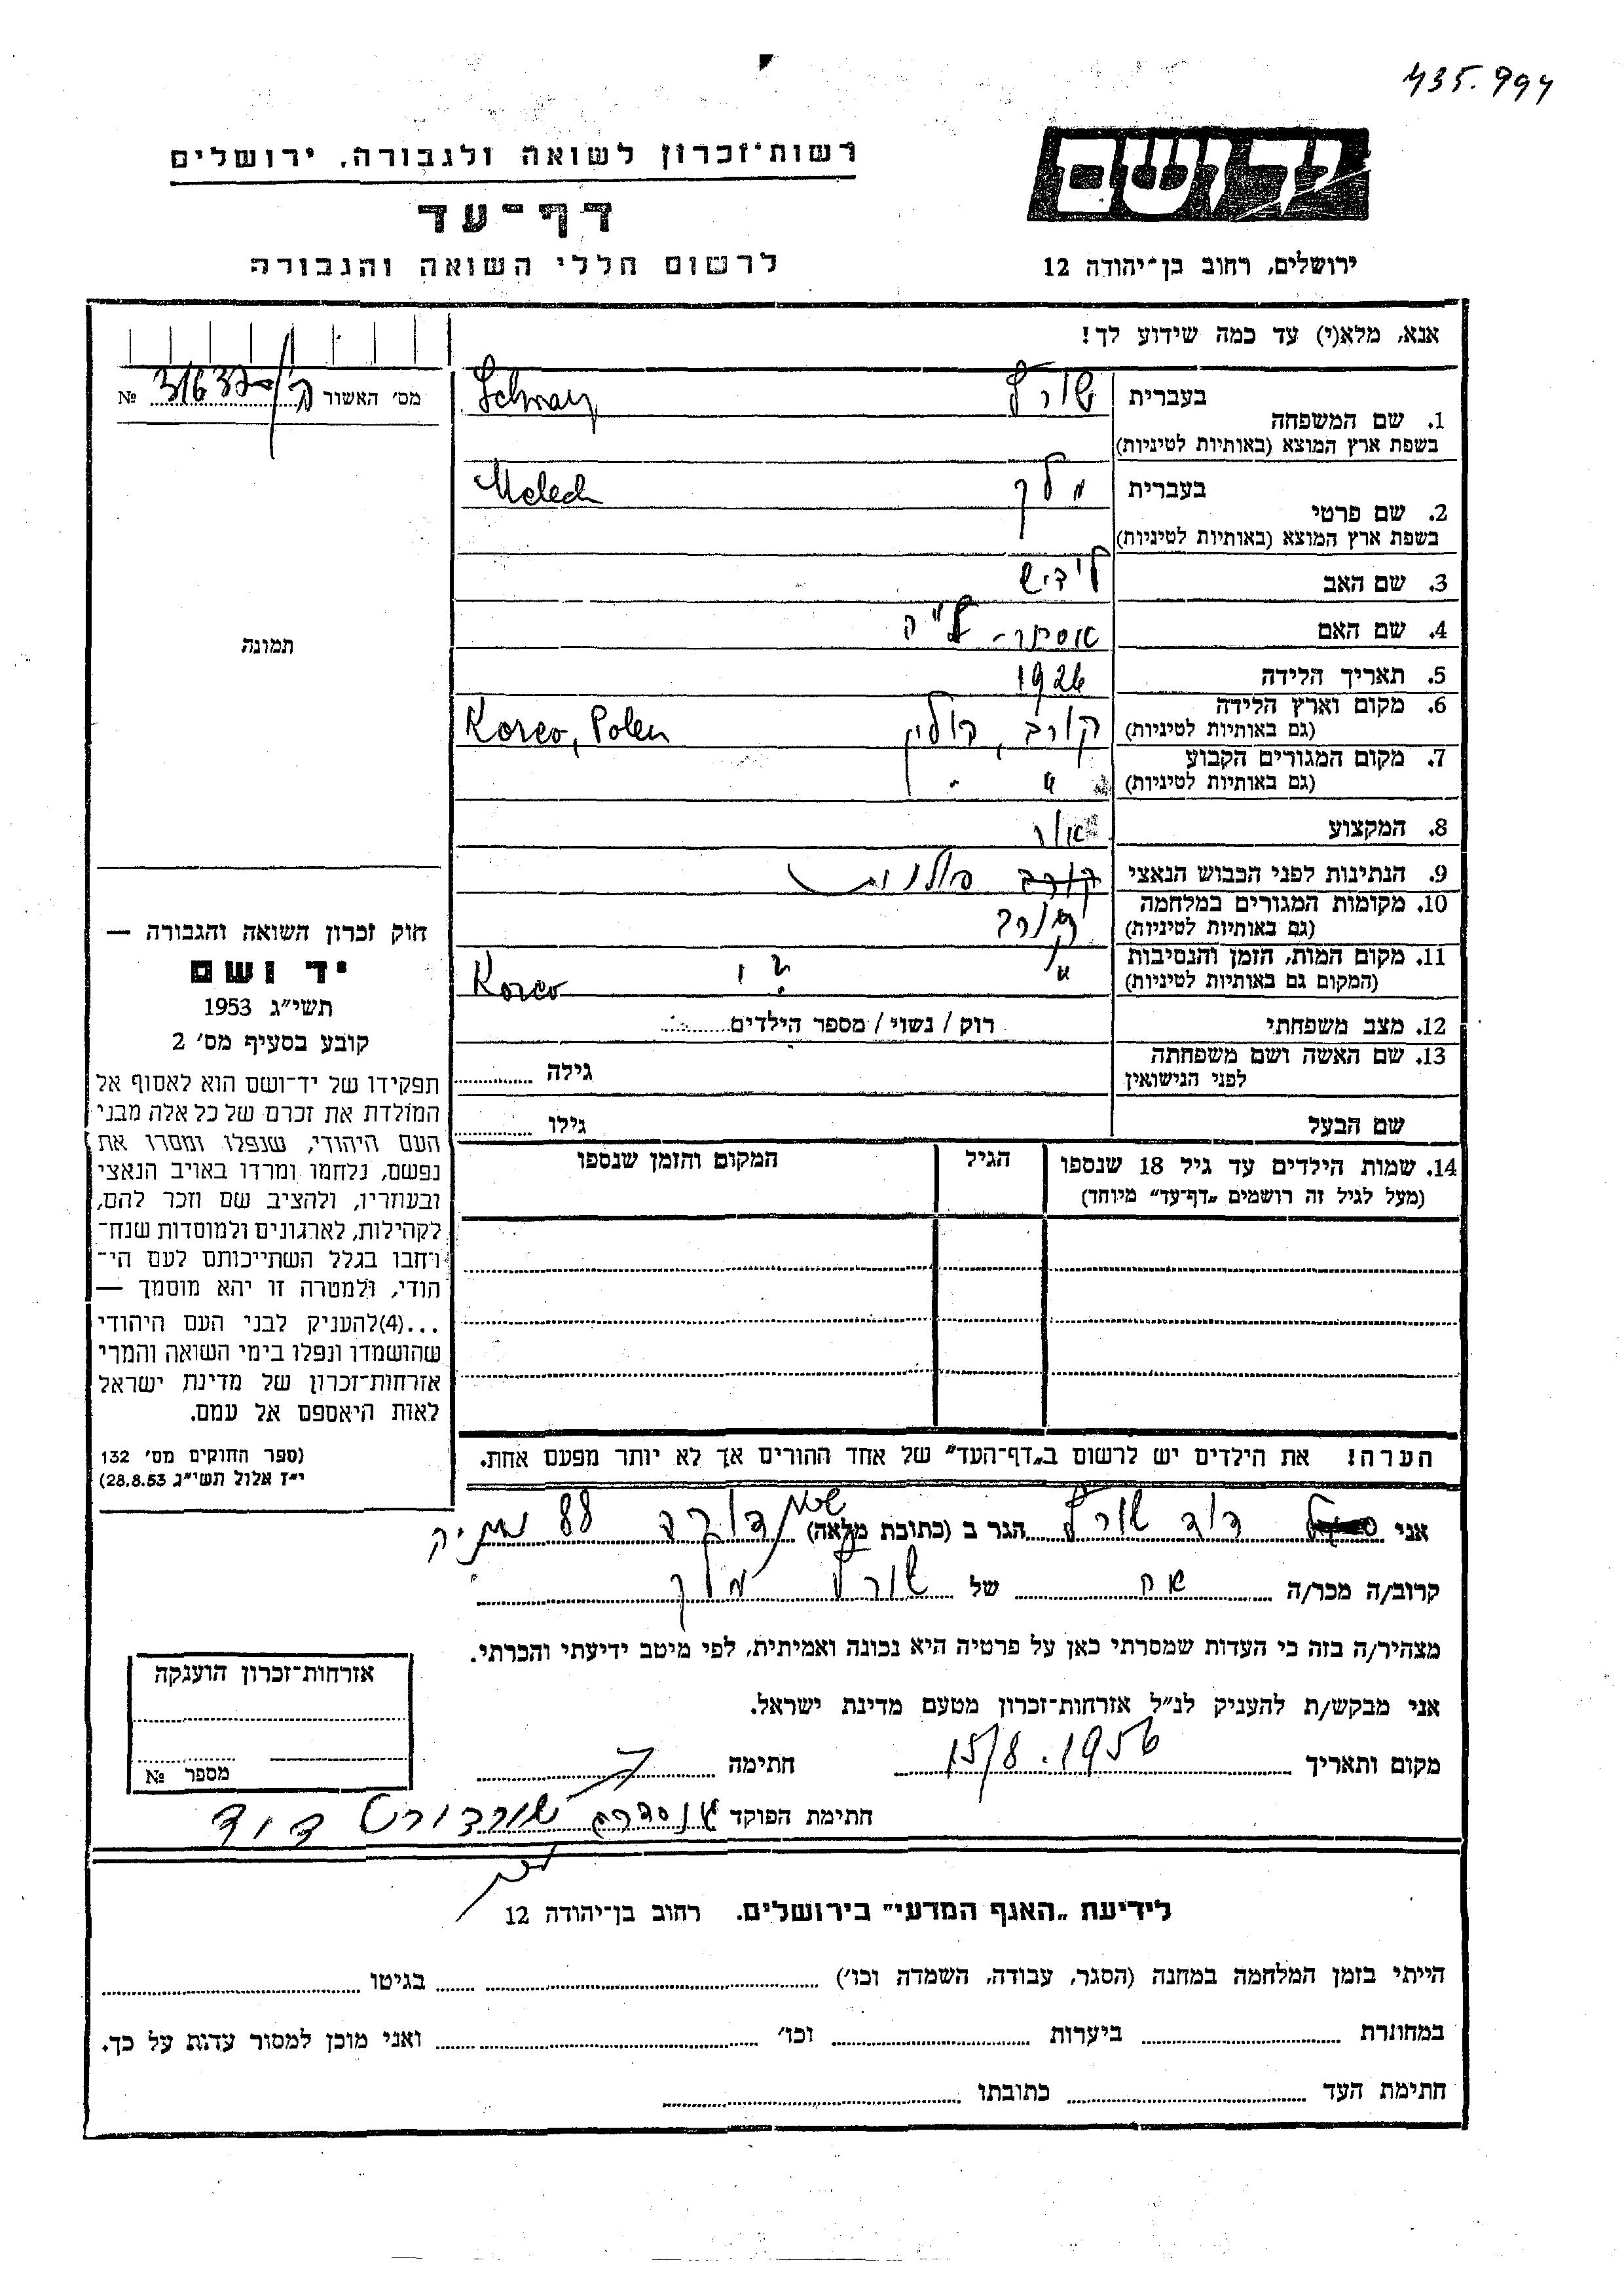 435.994
יד ושם
רשות־זכרון לשואה ולגבורה, ירושלים
דף־עד
לרשום חללי השואה והגבורה
ירושלים, רחוב בן־יהודה 12
אנא, מלא(י) עד כמה שידוע לך!
מס׳ האשור №
1. שם המשפחה
בעברית שורץ Schwarz
בשפת ארץ המוצא (באותיות לטיניות)
2. שם פרטי
בעברית מלך Melech
בשפת ארץ המוצא (באותיות לטיניות)
3. שם האב
4. שם האם אסתר-
5. תאריך הלידה 1926
6. מקום וארץ הלידה קורב, פולין Korev, Polen
(גם באותיות לטיניות)
7. מקום המגורים הקבוע "
(גם באותיות לטיניות)
8. המקצוע
9. הנתינות לפני הכבוש הנאצי קורב פולנית
10. מקומות המגורים במלחמה קורב
(גם באותיות לטיניות)
11. מקום המות, הזמן והנסיבות " Korev
(המקום גם באותיות לטיניות)
12. מצב משפחתי רוק / נשוי / מספר הילדים
13. שם האשה ושם משפחתה גילה
לפני הנישואין
שם הבעל גילו
14. שמות הילדים עד גיל 18 שנספו הגיל המקום והזמן שנספו
(מעל לגיל זה רושמים „דף־עד” מיוחד)
הערה! את הילדים יש לרשום ב„דף־העד” של אחד ההורים אך לא יותר מפעם אחת.
תמונה
חוק זכרון השואה והגבורה —
יד ושם
תשי״ג 1953
קובע בסעיף מס׳ 2
תפקידו של יד־ושם הוא לאסוף אל
המולדת את זכרם של כל אלה מבני
העם היהודי, שנפלו ומסרו את
נפשם, נלחמו ומרדו באויב הנאצי
ובעוזריו, ולהציב שם וזכר להם,
לקהילות, לארגונים ולמוסדות שנח־
רבו בגלל השתייכותם לעם הי־
הודי, ולמטרה זו יהא מוסמך —
...(4) להעניק לבני העם היהודי
שהושמדו ונפלו בימי השואה והמרי
אזרחות־זכרון של מדינת ישראל
לאות היאספם אל עמם.
(ספר החוקים מס׳ 132
י״ז אלול תשי״ג 28.8.53)
אני דוד שורץ הגר ב (כתובת מלאה) 88
קרוב/ה מכר/ה אח של שורץ מלך
מצהיר/ה בזה כי העדות שמסרתי כאן על פרטיה היא נכונה ואמיתית, לפי מיטב ידיעתי והכרתי.
אני מבקש/ת להעניק לנ״ל אזרחות־זכרון מטעם מדינת ישראל.
מקום ותאריך 15/8.1956 חתימה
חתימת הפוקד דוד
אזרחות־זכרון הוענקה
מספר №
לידיעת „האגף המדעי” בירושלים. רחוב בן־יהודה 12
הייתי בזמן המלחמה במחנה (הסגר, עבודה, השמדה וכו׳) בגיטו
במחתרת ביערות וכו׳ ואני מוכן למסור עדות על כך.
חתימת העד כתובתו